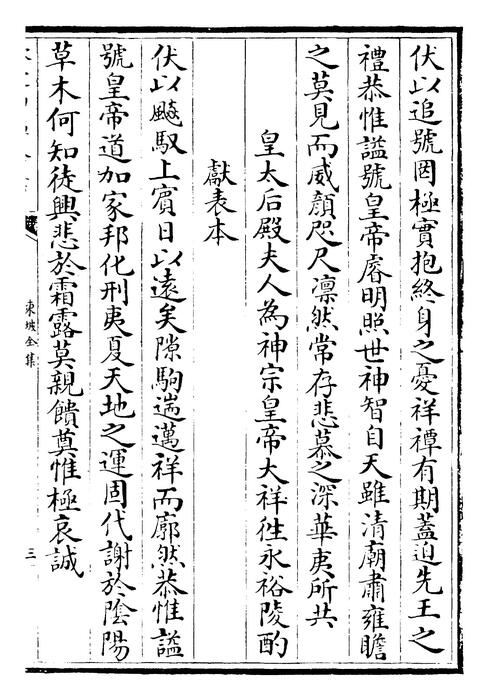 伏以追號罔極實抱終身之憂祥禫有期蓋迫先王之
禮恭惟謚號皇帝睿明照世神智自天雖清廟肅雍瞻
之莫見而威顏咫尺凛然常存悲慕之深華夷所共
皇太后殿夫人為神宗皇帝大祥徃永裕陵酌
獻表本
伏以飇馭上賓日以遠矣隙駒遄邁祥而廓然恭惟謚
號皇帝道加家邦化刑夷夏天地之運固代謝於陰陽
草木何知徒興悲於霜露莫親饋奠惟極哀誠
東坡全集
三